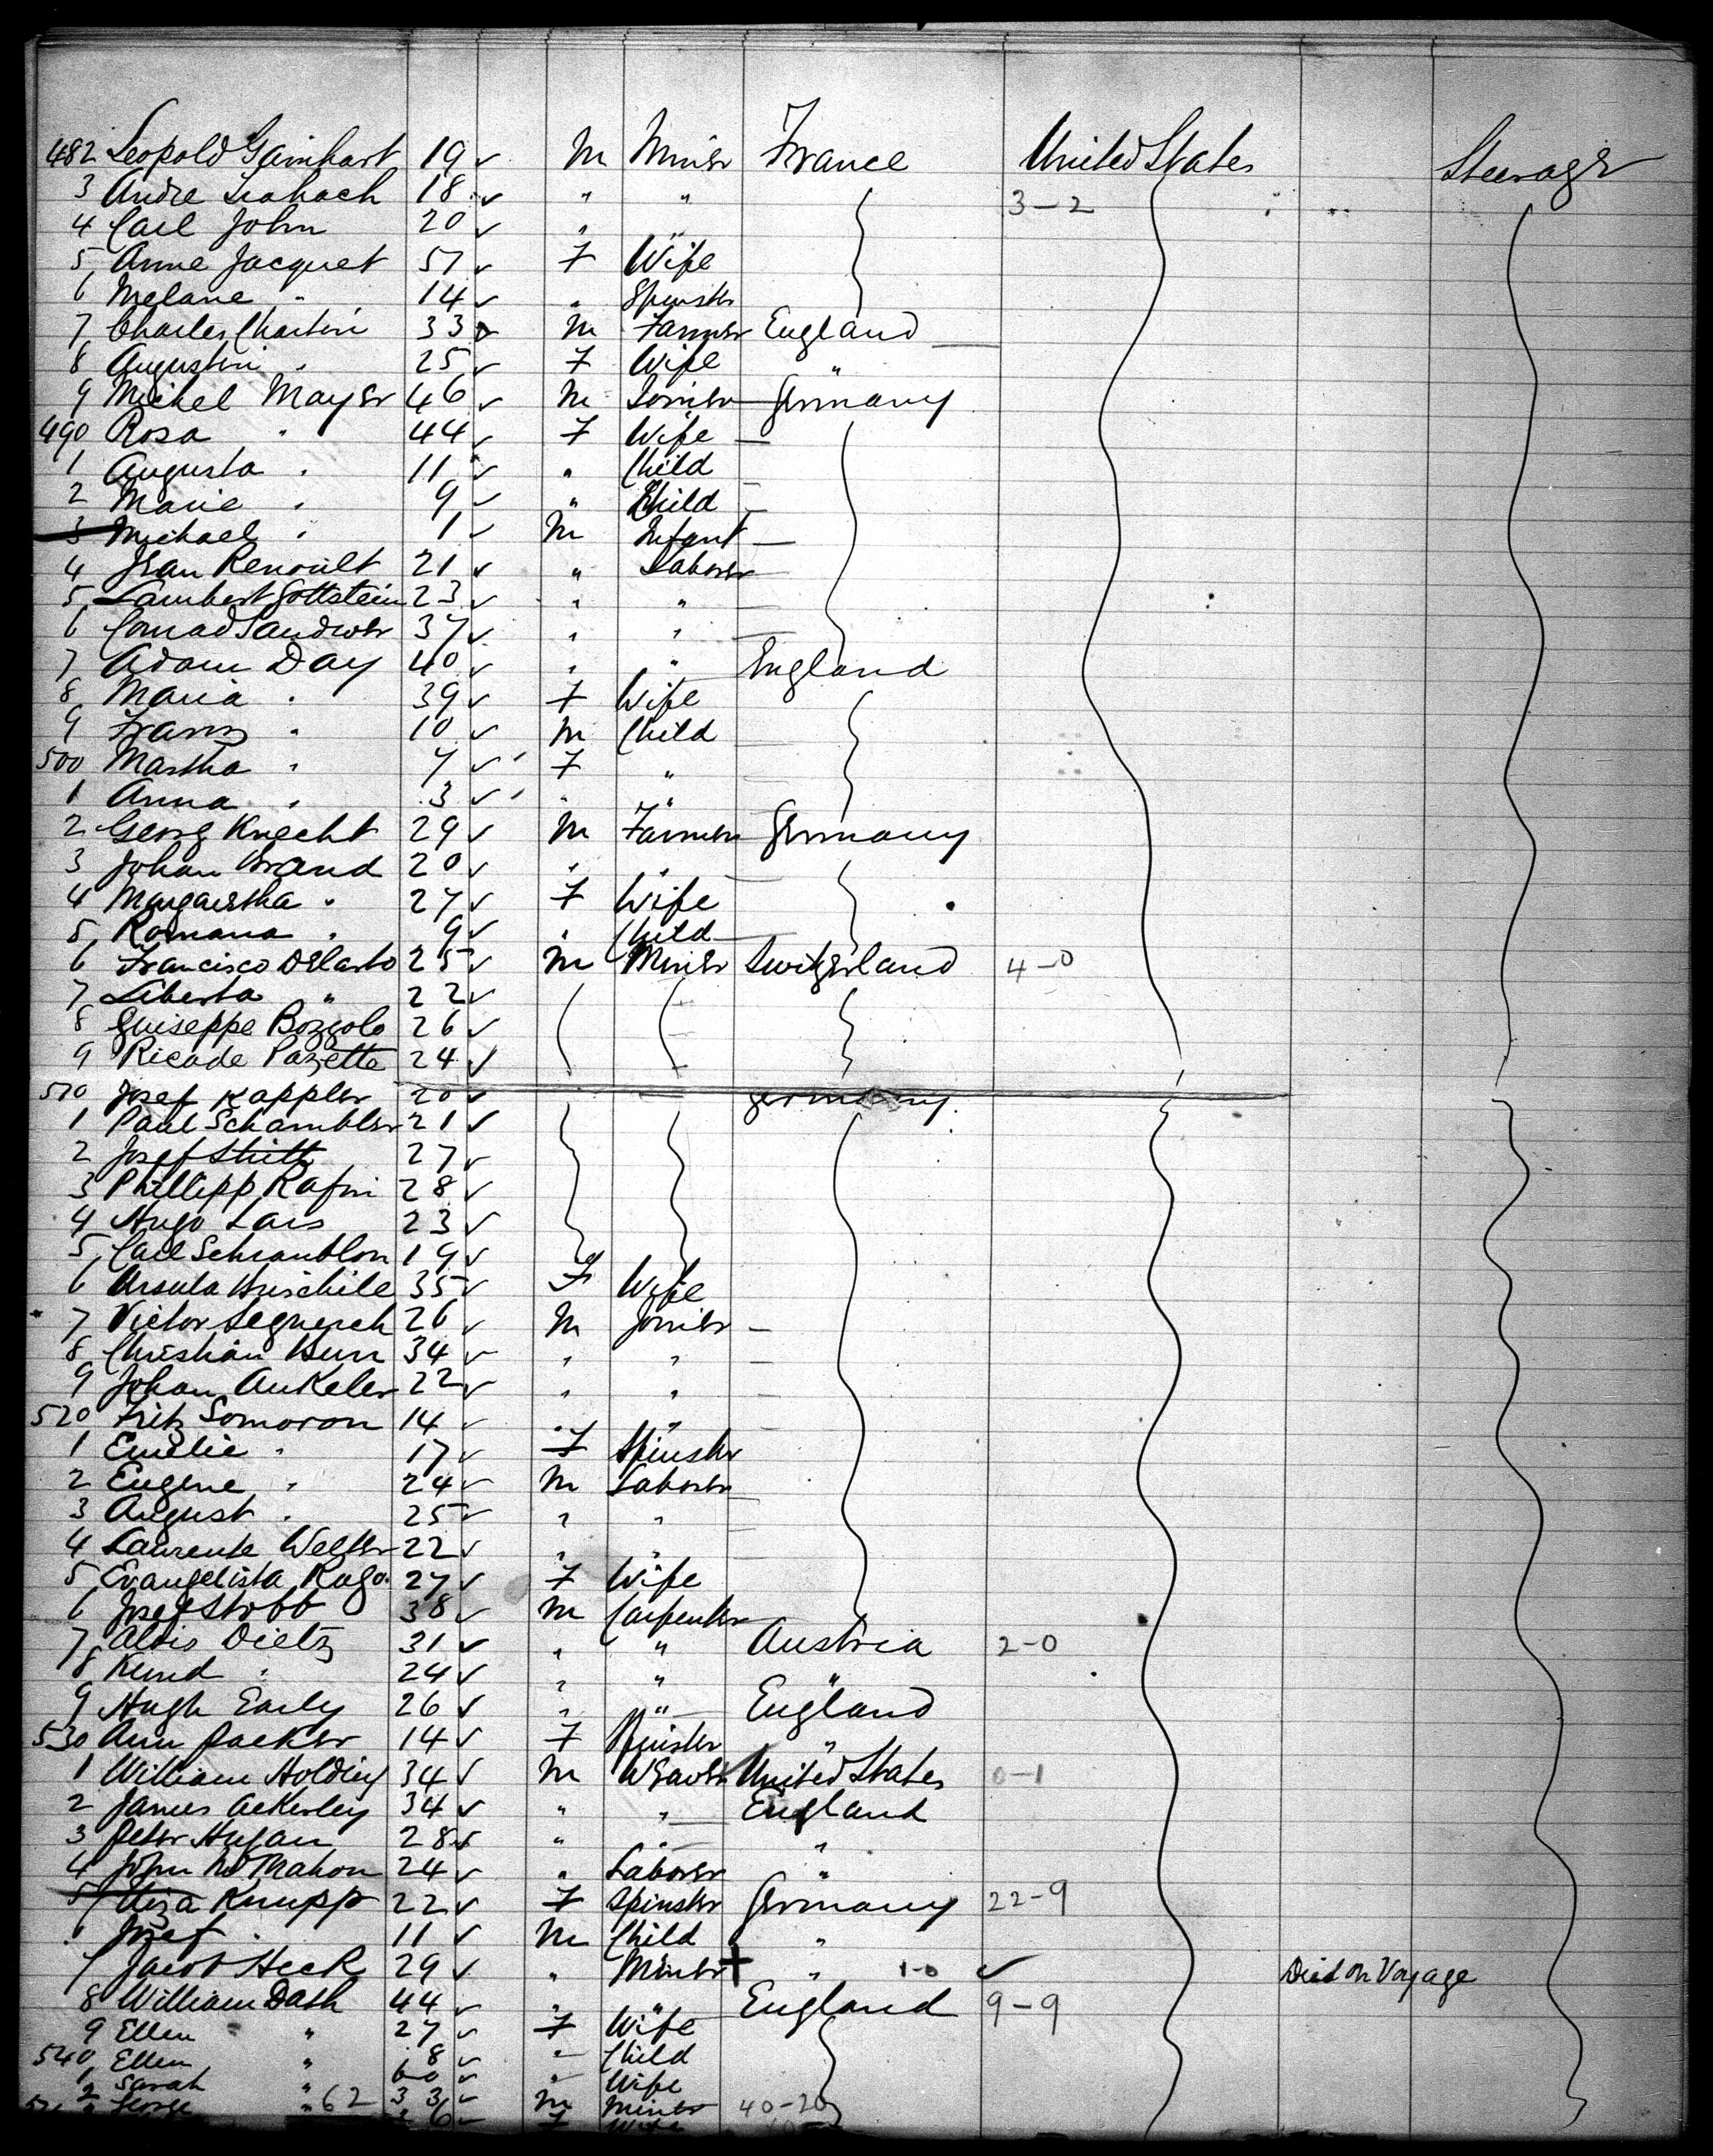 482 Leopold Gainhart 19 ✓ M Miner France United States Steerage
3 Andre 18 ✓ " " 3-2
4 Carl John 20 ✓ " "
5 Anne Jacquet 57 ✓ F Wife
6 Melanie " 14 ✓ " Spinster
7 Charles 33 ✓ M Farmer England
8 Augustin " 25 ✓ F Wife "
9 Michel Mayer 46 ✓ M Joiner Germany
490 Rosa " 44 ✓ F Wife
1 Augusta " 11 ✓ " Child
2 Marie " 9 ✓ " Child
3 Michael " 1 ✓ M Infant
4 Jean Renoult 21 ✓ " Laborer
5 Lambert Gottstein 23 ✓ " "
6 Conrad 37 ✓ " "
7 Adam Day 40 ✓ " " England
8 Maria " 39 ✓ F Wife
9 Franz " 10 ✓ M Child
500 Martha " 7 ✓ F "
1 Anna " 3 ✓ " "
2 Georg Knecht 29 ✓ M Farmer Germany
3 Johan Brand 20 ✓ " "
4 Margaretha " 27 ✓ F Wife
5 Romana " 9 ✓ " Child
6 Francisco 25 ✓ M Miner Switzerland 4-0
7 Liberta " 22 ✓
8 Guiseppe Bozzolo 26 ✓
9 Ricade Pazette 24 ✓
510 Josef Kappler 20 ✓ Germany
1 Paul Schambler 21 ✓
2 Josef 27 ✓
3 Phillipp Rafin 28 ✓
4 Hugo Lais 23 ✓
5 Carl 19 ✓
6 Ursula 35 ✓ F Wife
7 Victor 26 ✓ M Joiner
8 Christian 34 ✓ " "
9 Johan Ankeler 22 ✓ " "
520 Fritz Somoron 14 ✓ " "
1 Emelie " 17 ✓ F Spinster
2 Eugene " 24 ✓ M Laborer
3 August " 25 ✓ " "
4 Laurente Welter 22 ✓ " "
5 Evangelista 27 ✓ F Wife
6 Josef Stobb 38 ✓ M Carpenter
7 Alois Dietz 31 ✓ " " Austria 2-0
8 " 24 ✓ " " "
9 Hugh Early 26 ✓ " " England
530 Ann Packer 14 ✓ F Spinster "
1 William Holding 34 ✓ M Weaver United States 0-1
2 James Ackerley 34 ✓ " " England
3 Peter 28 ✓ " "
4 John McMahon 24 ✓ " Laborer "
5 Knupp 22 ✓ F Spinster Germany 22-9
Josef " 11 ✓ M Child "
7 Jacob Heck 29 ✓ " Miner + " 1-0 ✓ Died on Voyage
8 William Dash 44 ✓ " " England 9-9
9 Ellen " 27 ✓ F Wife
540 Ellen " 8 ✓ " Child
1 Sarah " 60 ✓ " Wife
2 George " 62 33 ✓ M Miner 40-20